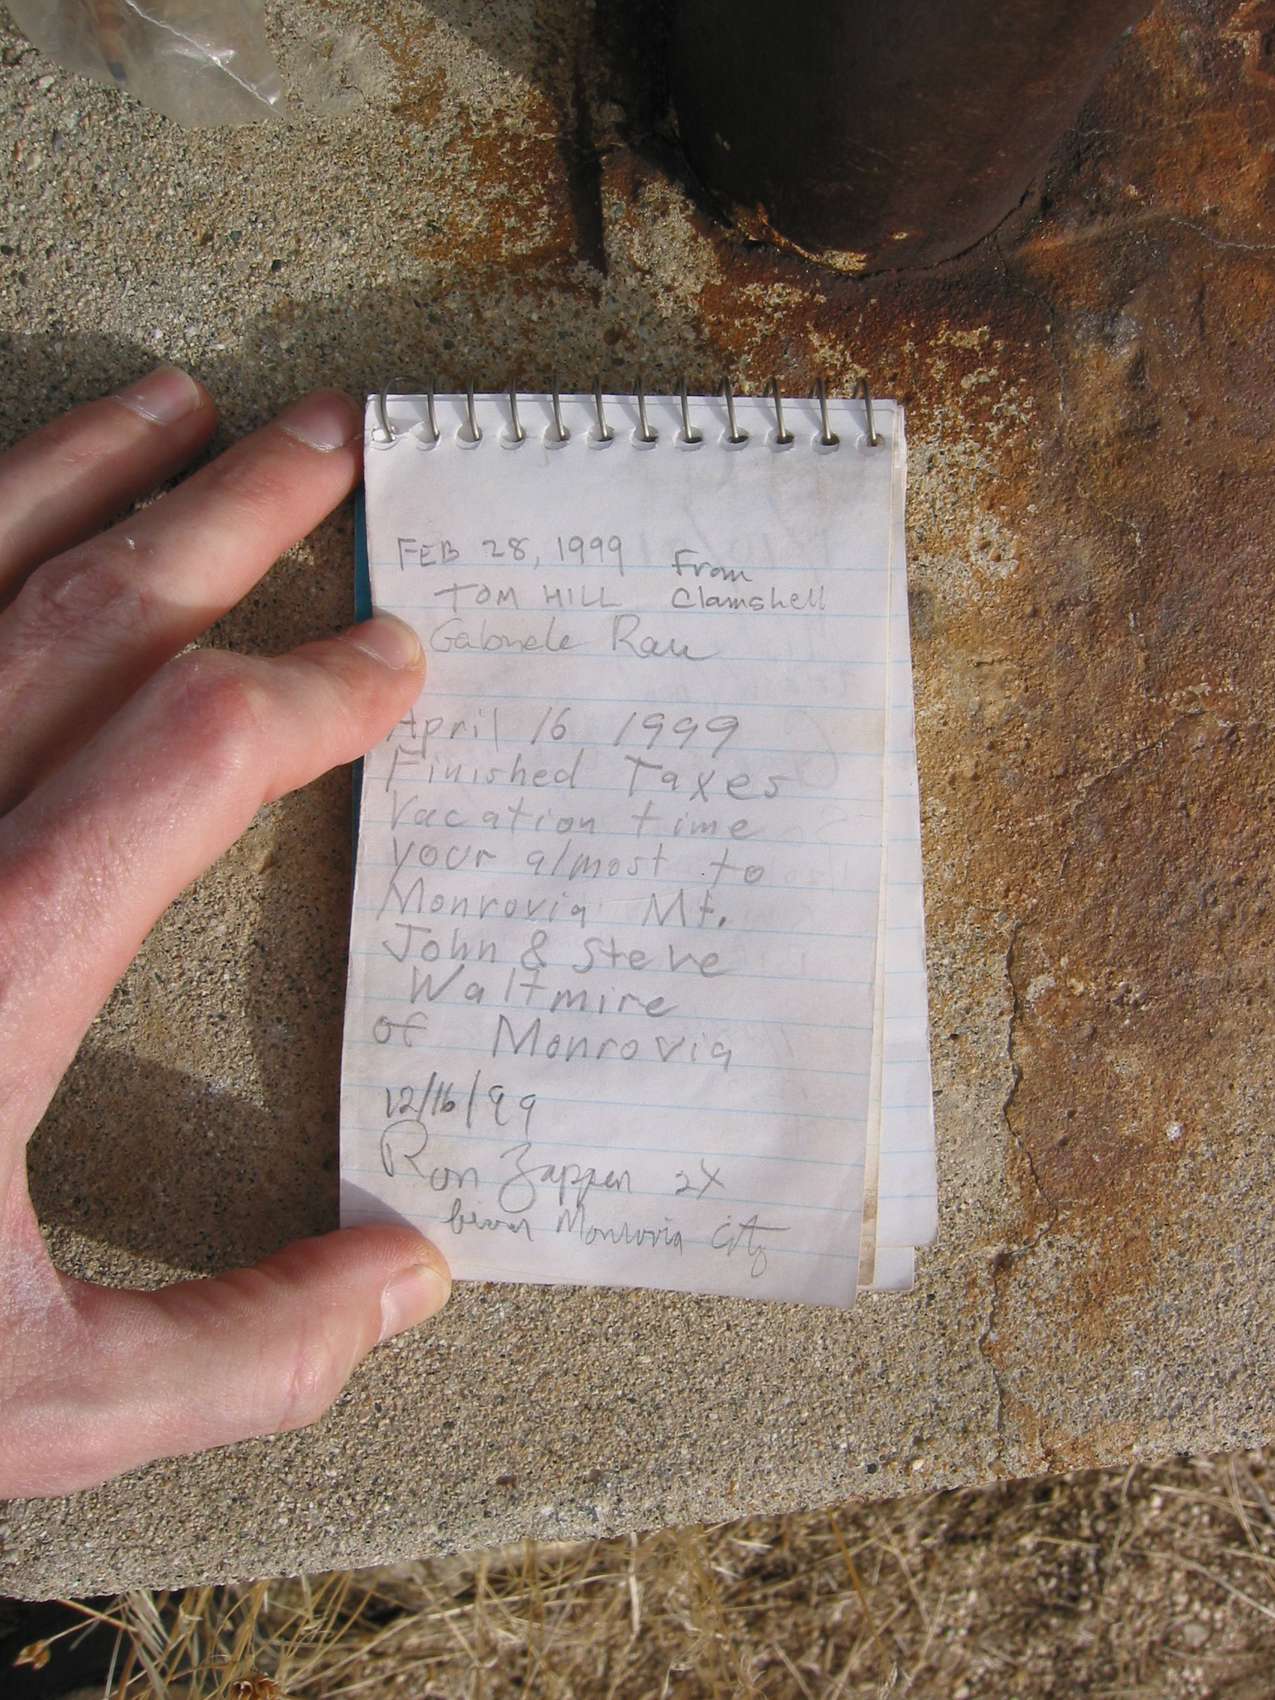 FEB 28, 1999 From
TOM HILL Clamshell
Gabriele Rau
April 16 1999
Finished Taxes
Vacation time
your almost to
Monrovia Mt.
John & Steve
Waltmire
of Monrovia
12/16/99
Ron Zappen 2X
Monrovia City